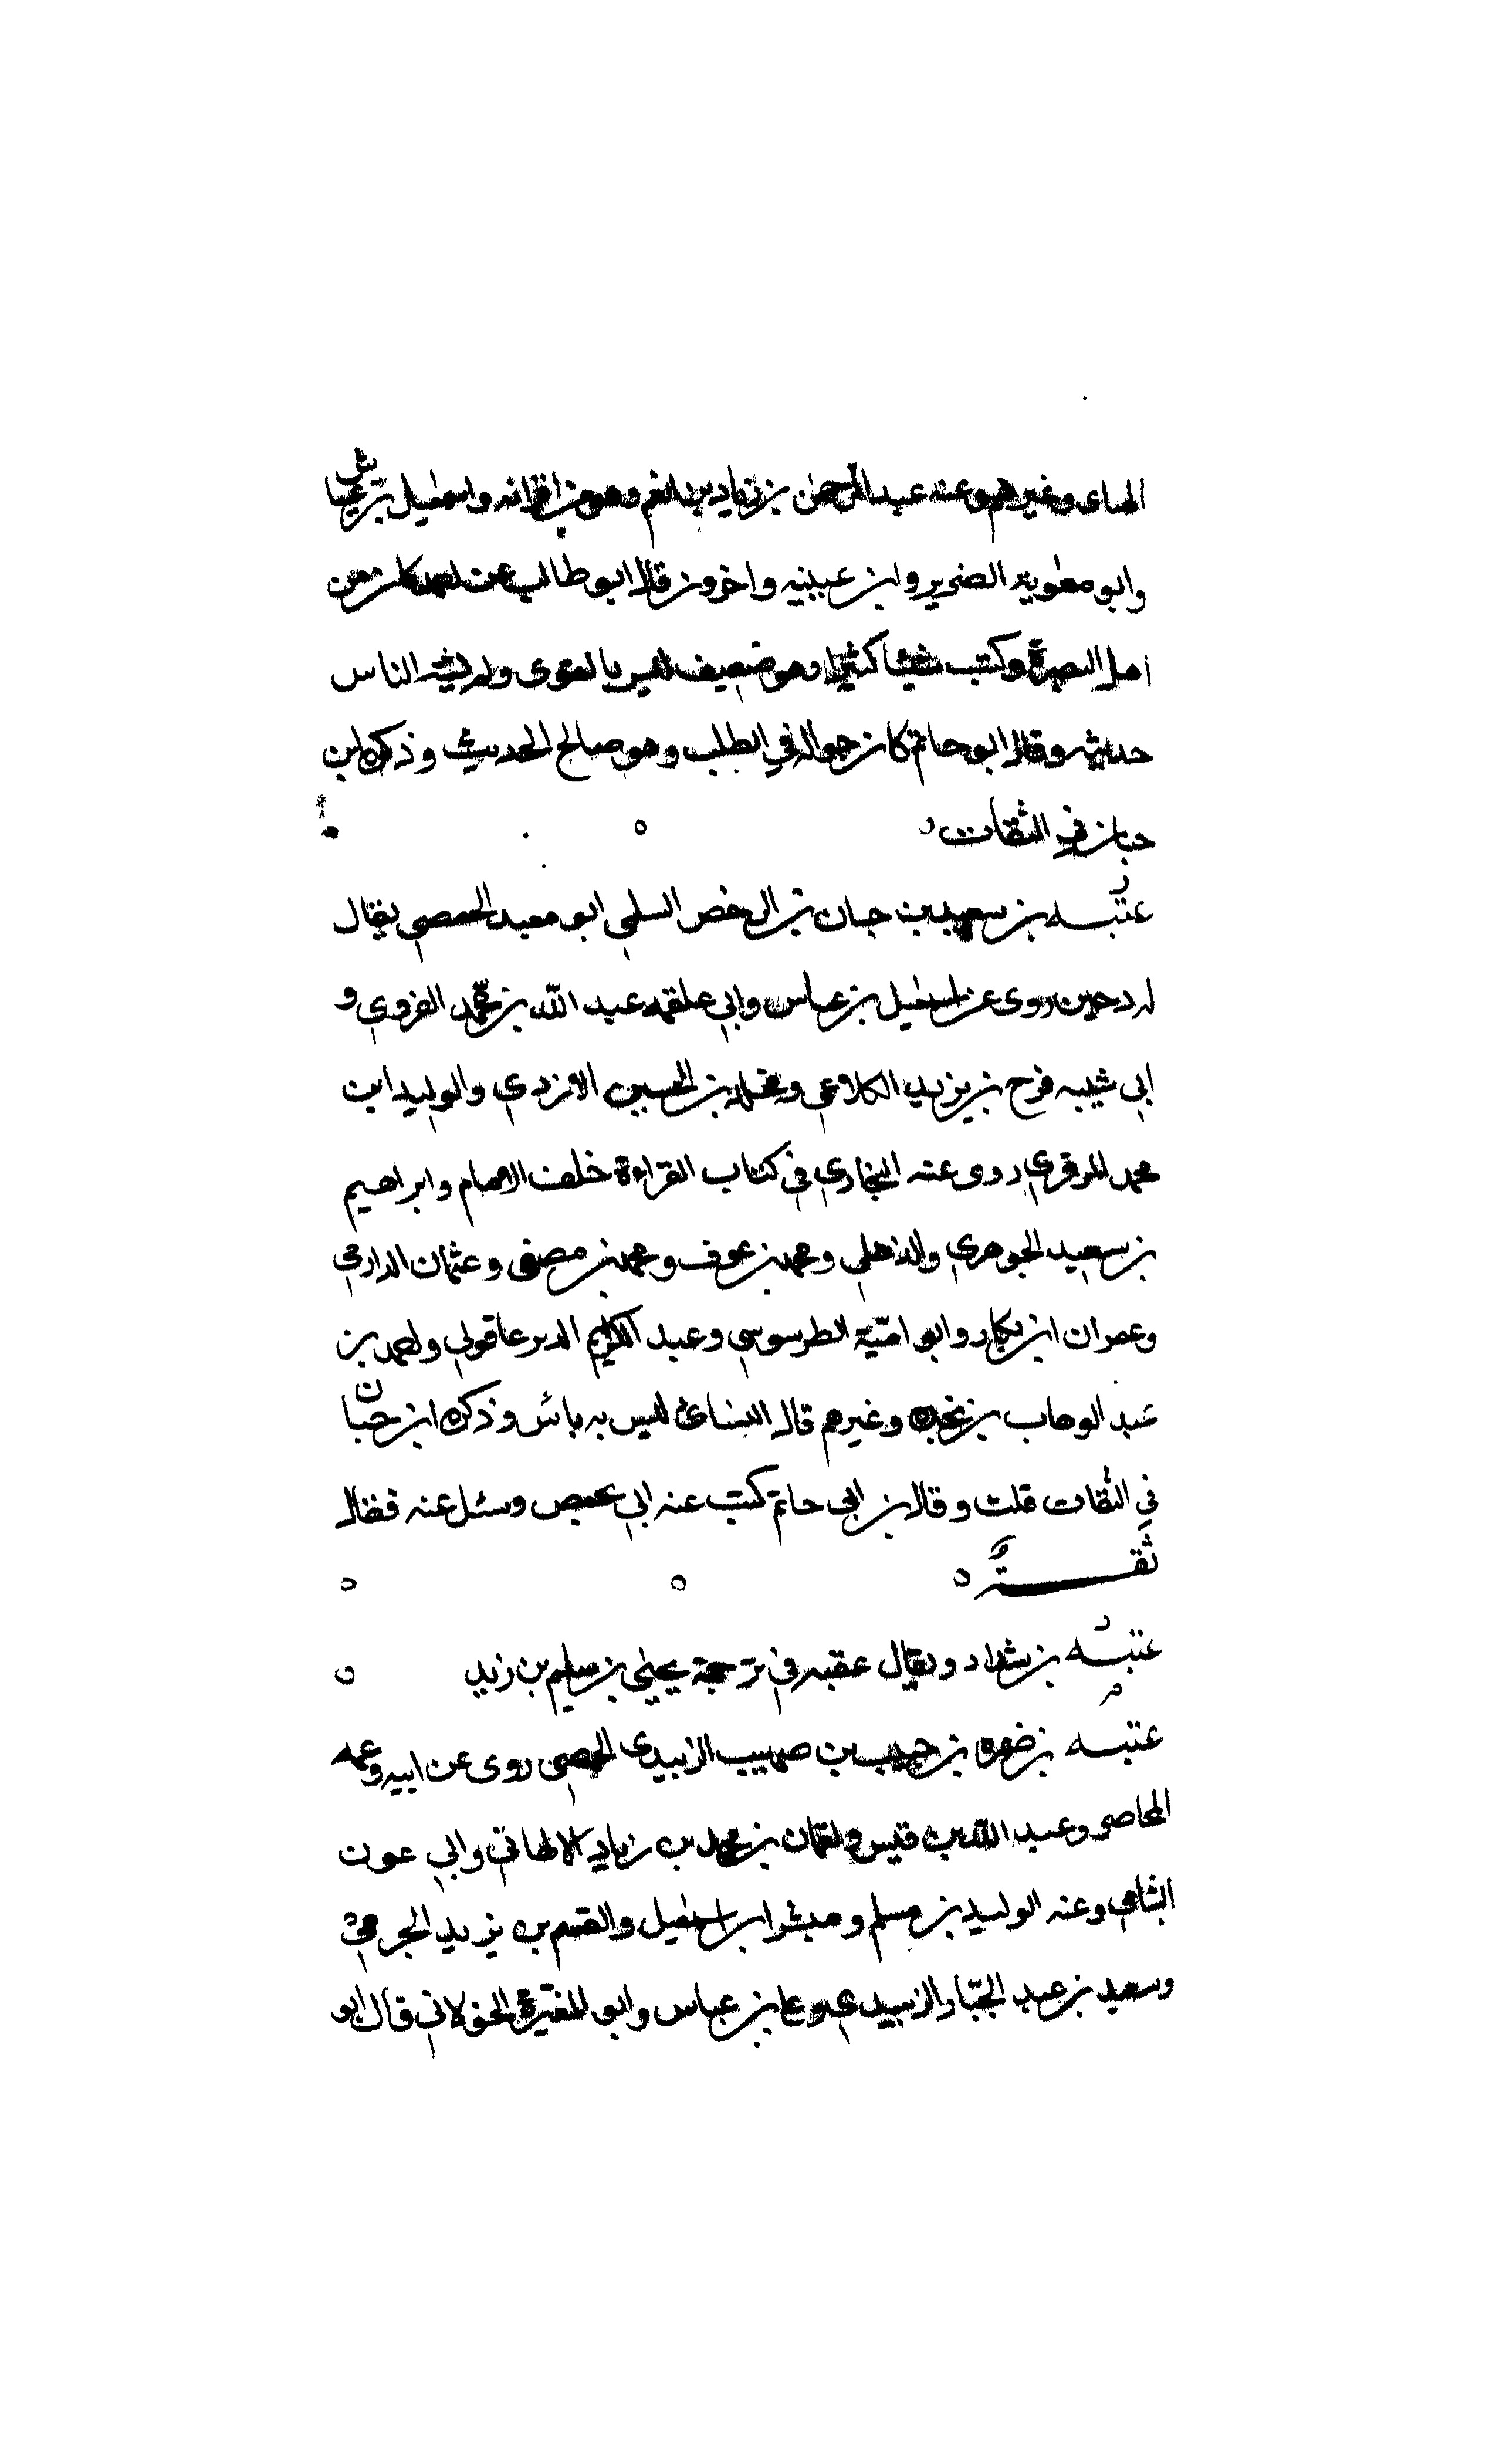 الهناى وغيرهم وعنه عبد الرحمن بن زياد بن انعم وهو من اقرانه واسمعيل بن عياش
وابو معوية الضرير وابن عيينه واخرون قال ابو طالب عن احمد كان من
اهل البصرة وكتب شيئا كثيرا وهو ضعيف ليس بالقوى ولم يشته الناس
حديثه وقال ابو حاتم كان جوالة في الطلب وهو صالح الحديث وذكره ابن
حبان في الثقات
عتبـه بن سعيد بن حبان بن الرخص السلمي ابو سعيد الحمصي يقال
له دحين روى عن اسمعيل بن عياس وابي علقمه عبد الله بن محمد الفروي و
ابي شيبه فرح بن يزيد الكلاعي ومخلد بن الحسين الازدي والوليد ابن
محمد الموقري روى عنه البخاري في كتاب القراءة خلف الامام وابراهيم
بن سعيد الجوهري والذهلي ومحمد بن عوف ومحمد بن مصفى وعثمان الدارمي
وعمران ابن بكار وابو اميّة الطرسوسي وعبد الكريم الدير عاقولي واحمد بن
عبد الوهاب بن نجده وغيرهم قال النسائ ليس به بائس وذكره ابن حبان
في الثقات قلت وقال بن ابي حاتم كتب عنه ابي بحمص وسئل عنه فقال
ثقـــة
عتبـه بن شداد ويقال عقبه في ترجمة يحيى بن سليم بن زيد
عتبـه بن ضمره بن حبيب بن صهيب الزبيدى الحمصي روى عن ابيه وعمه
المحاصر وعبد الله بن قيس ولقمان بن محمد بن زياد الالهاني وابي عون
الشامي وعنه الوليد بن مسلم ومبشر ابن اسمعيل والقسم بن يزيد الجرمي
وسعيد بن عبد الجبّار الزبيدي وعلي بن عباس وابو المغيرة الخولاني قال ابو